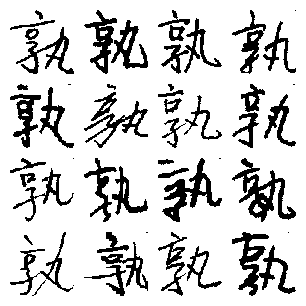 孰孰孰孰
孰孰孰孰
孰孰孰孰
孰孰孰孰